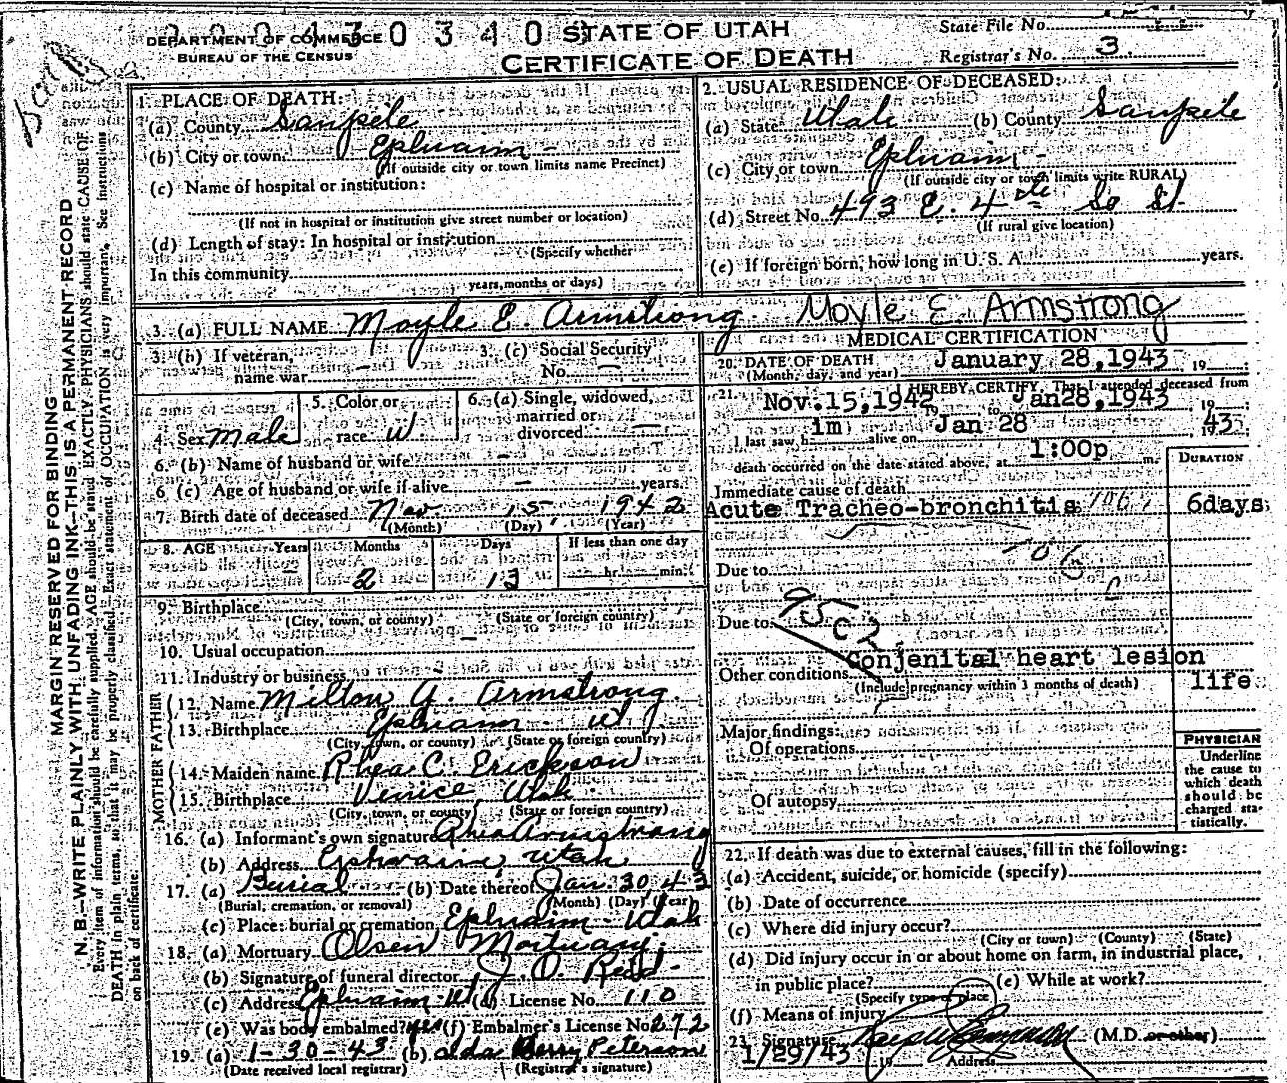 DEPARTMENT OF COMMERCE
BUREAU OF THE CENSUS
0 3 4 0
STATE OF UTAH
CERTIFICATE OF DEATH
State File No.
Registrar's No. 3
MARGIN RESERVED FOR BINDING
N. B.—WRITE PLAINLY WITH UNFADING INK—THIS IS A PERMANENT RECORD
Every item of information should be carefully supplied. AGE should be stated EXACTLY. PHYSICIANS should state CAUSE OF
DEATH in plain terms, so that it may be properly classified. Exact statement of OCCUPATION is very important. See instructions
on back of certificate.
1. PLACE OF DEATH:
(a) County Sanpete
(b) City or town Ephraim -
(If outside city or town limits name Precinct)
(c) Name of hospital or institution:
(If not in hospital or institution give street number or location)
(d) Length of stay: In hospital or institution
(Specify whether
In this community
years, months or days)
2. USUAL RESIDENCE OF DECEASED:
(a) State Utah (b) County Sanpete
(c) City or town Ephraim -
(If outside city or town limits write RURAL)
(d) Street No. 493 E. 4th So St.
(If rural give location)
(e) If foreign born, how long in U. S. A. years.
3. (a) FULL NAME Moyle E. Armstrong Moyle E. Armstrong
3. (b) If veteran,
name war
3. (c) Social Security
No. —
4. Sex Male
5. Color or
race W
6. (a) Single, widowed,
married or
divorced —
6. (b) Name of husband or wife -
6 (c) Age of husband or wife if alive - years.
7. Birth date of deceased Nov 15 1942
(Month) (Day) (Year)
8. AGE Years Months Days If less than one day
2 13 hr. min.
9. Birthplace
(City, town, or county) (State or foreign country)
10. Usual occupation
11. Industry or business
FATHER
12. Name Milton A. Armstrong.
13. Birthplace Ephraim - Ut
(City, town, or county) (State or foreign country)
MOTHER
14. Maiden name Rhea C. Erickson
15. Birthplace Venice Utah
(City, town, or county) (State or foreign country)
16. (a) Informant's own signature Rhea Armstrong
(b) Address Ephraim, Utah
17. (a) Burial (b) Date thereof Jan. 30, 43
(Burial, cremation, or removal) (Month) (Day) (Year)
(c) Place: burial or cremation Ephraim - Utah
18. (a) Mortuary Olsen Mortuary.
(b) Signature of funeral director
(c) Address Ephraim Ut (d) License No. 110
(e) Was body embalmed? yes (f) Embalmer's License No. 272
19. (a) 1-30-43 (b) Alda Berry Peterson
(Date received local registrar) (Registrar's signature)
MEDICAL CERTIFICATION
20. DATE OF DEATH January 28,1943 19
(Month, day, and year)
21. I HEREBY CERTIFY, That I attended deceased from
Nov.15,1942 19 to Jan28,1943 19
I last saw him alive on Jan 28 1943
death occurred on the date stated above, at 1:00p m.
DURATION
Immediate cause of death
Acute Tracheo-bronchitis 6days
Due to
Due to
Conjenital heart lesion
Other conditions life
(Include pregnancy within 3 months of death)
Major findings:
Of operations
Of autopsy
PHYSICIAN
Underline
the cause to
which death
should be
charged sta-
tistically.
22. If death was due to external causes, fill in the following:
(a) Accident, suicide, or homicide (specify)
(b) Date of occurrence
(c) Where did injury occur?
(City or town) (County) (State)
(d) Did injury occur in or about home on farm, in industrial place,
in public place? (e) While at work?
(Specify type of place
(f) Means of injury
23. Signature (M.D. or other)
1/29/43 19 Address